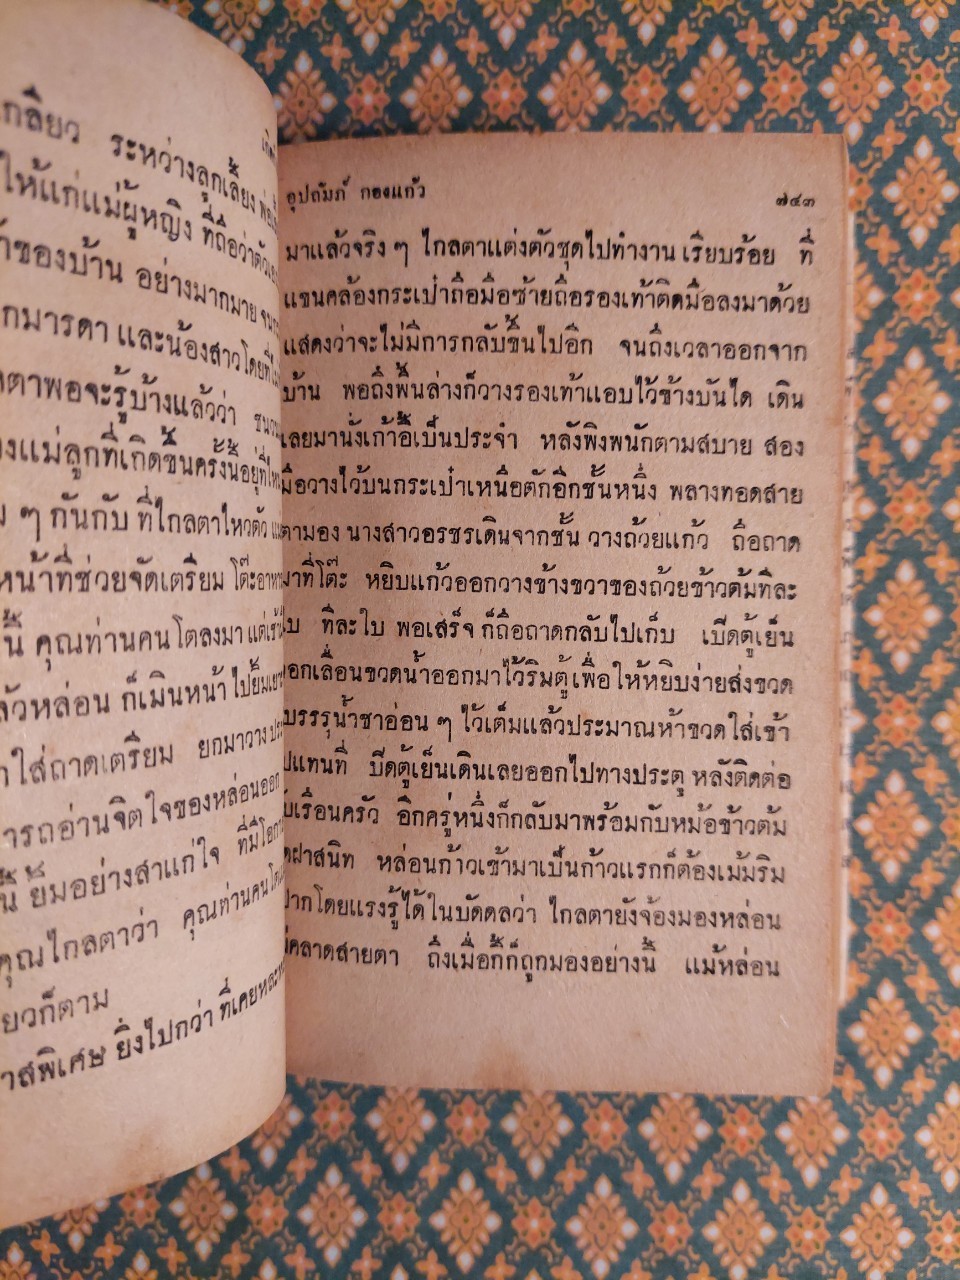 กลียว ระหว่างลูกเลี้ยง
ให้แก่แม่ผู้หญิง ที่ถือว่าตัว
ของบ้าน อย่างมากมาย
กมารดา และน้องสาวโดยที่
ตาพอจะรู้บ้างแล้วว่า
งแม่ลูกที่เกิดขึ้นครั้งนี้อยู่ที่ไหน
ๆ กันกับ ที่ไกลตาไหวตัว
หน้าที่ช่วยจัดเตรียม โต๊ะอาหา
นี้ คุณท่านคนโตลงมา แต่เช้า
ล้วหล่อน ก็เมินหน้า ไปยิ้มเยา
ใส่ถาดเตรียม ยกมาวาง
ารถอ่านจิตใจของหล่อนออก
นี้ ยิ้มอย่างสาแก่ใจ ที่มีโอก
คุณไกลตาว่า คุณท่านคนโต
ยวก็ตาม
าสพิเศษ ยิ่งไปกว่า ที่เคย
อุปถัมภ์ กองแก้ว ๗๔๓
มาแล้วจริง ๆ ไกลตาแต่งตัวชุดไปทำงาน เรียบร้อย ที่
แขนคล้องกระเป๋าถือมือซ้ายถือรองเท้าติดมือลงมาด้วย
แสดงว่าจะไม่มีการกลับขึ้นไปอีก จนถึงเวลาออกจาก
บ้าน พอถึงพื้นล่างก็วางรองเท้าแอบไว้ข้างบันได เดิน
เลยมานั่งเก้าอี้เป็นประจำ หลังพิงพนักตามสบาย สอง
มือวางไว้บนกระเป๋าเหนือตักอีกชั้นหนึ่ง พลางทอดสาย
ตามอง นางสาวอรชรเดินจากชั้น วางถ้วยแก้ว ถือถาด
มาที่โต๊ะ หยิบแก้วออกวางข้างขวาของถ้วยข้าวต้มทีละ
ใบ ทีละใบ พอเสร็จ ก็ถือถาดกลับไปเก็บ เปิดตู้เย็น
ออกเลื่อนขวดน้ำออกมาไว้ริมตู้เพื่อให้หยิบง่ายส่งขวด
บรรรุน้ำชาอ่อน ๆ ไว้เต็มแล้วประมาณห้าขวด ใส่เข้า
ปแทนที่ ปิดตู้เย็นเดินเลยออกไปทางประตู หลังติดต่อ
บเรือนครัว อีกครู่หนึ่งก็กลับมาพร้อมกับหม้อข้าวต้ม
ฝาสนิท หล่อนก้าวเข้ามาเป็นก้าวแรกก็ต้องเม้มริม
ปากโดยแรงรู้ได้ในบัดดลว่า ไกลตายังจ้องมองหล่อน
คลาดสายตา ถึงเมื่อกี้ก็ถูกมองอย่างนี้ แม้หล่อน